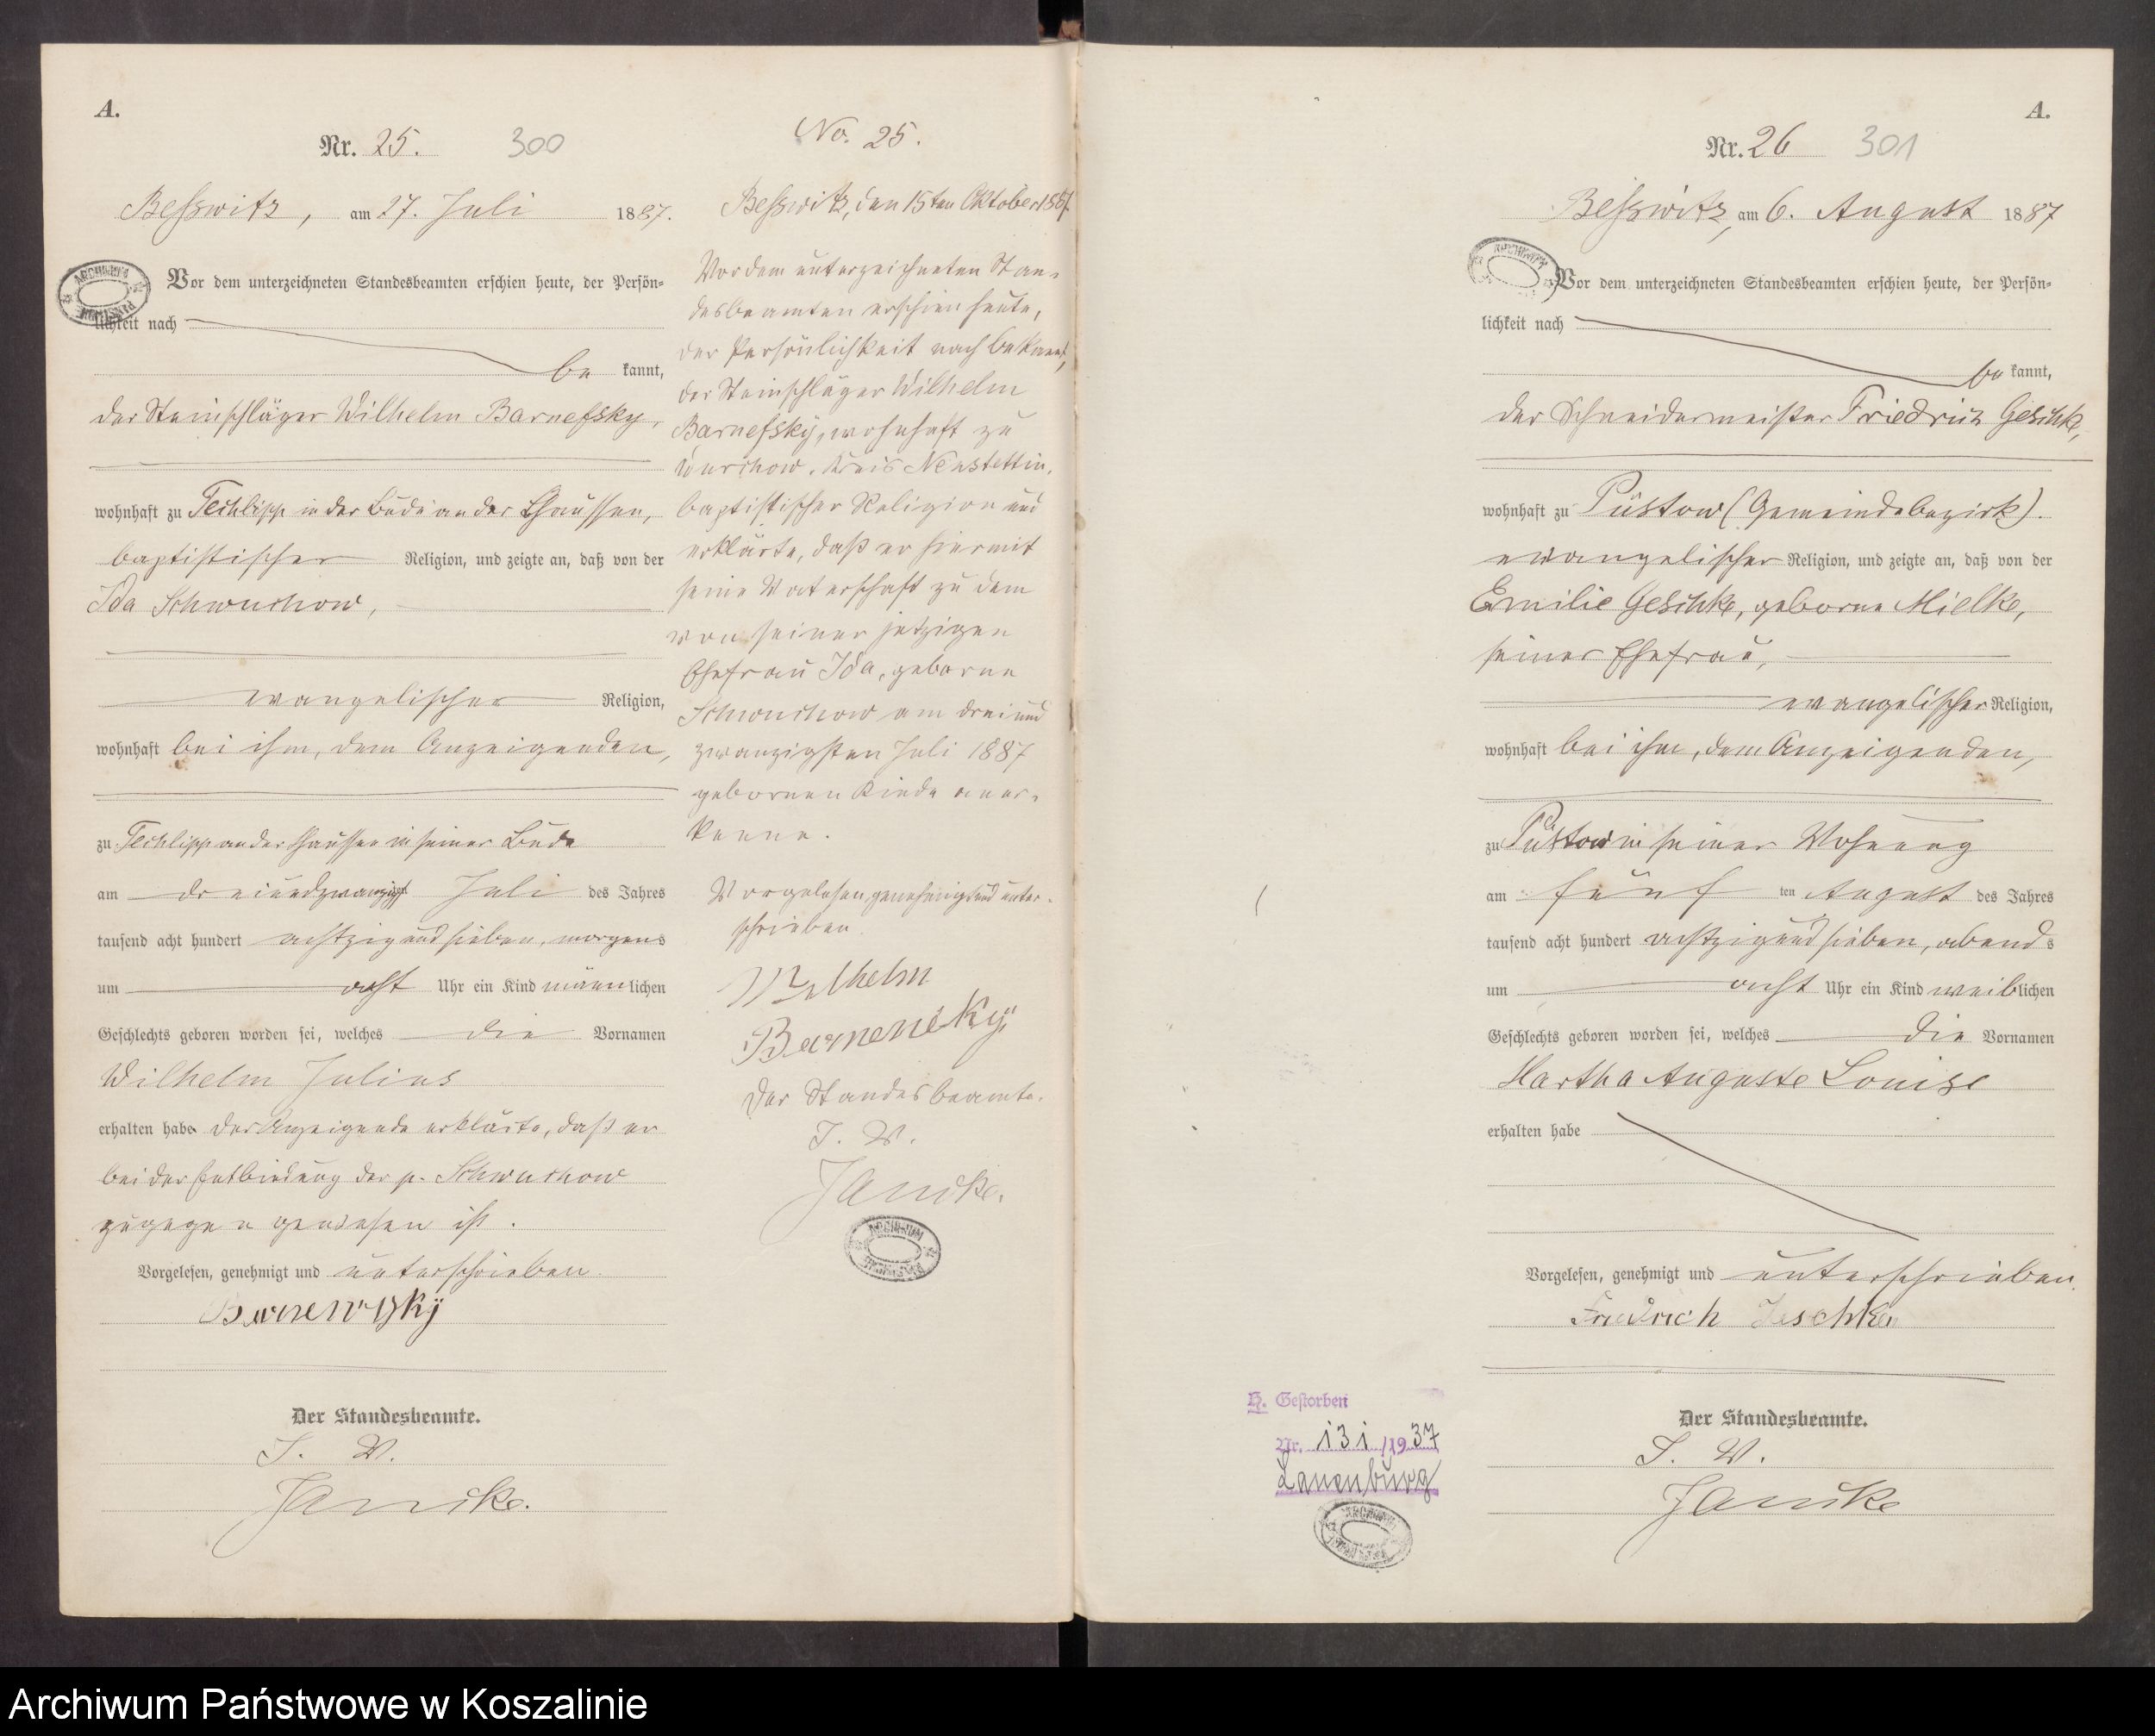 A.
Nr. 25. 300
Beßwitz, am 27. Juli 1887.
Vor dem unterzeichneten Standesbeamten erschien heute, der Persön-
lichkeit nach
be kannt,
der Steinschläger Wilhelm Barnefsky,
wohnhaft zu Techlipp in der Bude an der Chaussee,
baptistischer Religion, und zeigte an, daß von der
Ida Schwuchow,
evangelischer Religion,
wohnhaft bei ihm, dem Anzeigenden,
zu Techlipp an der Chaussee in seiner Bude
am dreiundzwanzigsten Juli des Jahres
tausend acht hundert achtzig und sieben, morgens
um acht Uhr ein Kind männlichen
Geschlechts geboren worden sei, welches die Vornamen
Wilhelm Julius
erhalten habe. Der Anzeigende erklärte, daß er
bei der Entbindung der p. Schwuchow
zugegen gewesen ist.
Vorgelesen, genehmigt und unterschrieben.
Barnewsky
Der Standesbeamte.
I. V.
Jancke.
No. 25.
Beßwitz, den 15ten Oktober 1887.
Vor dem unterzeichneten Stan-
desbeamten erschien heute,
der Persönlichkeit nach bekannt,
der Steinschläger Wilhelm
Barnefsky, wohnhaft zu
Wurchow, Kreis Neustettin,
baptistischer Religion und
erklärte, daß er hiermit
seine Vaterschaft zu dem
von seiner jetzigen
Ehefrau Ida, geborne
Schwuchow am drei und
zwanzigsten Juli 1887
gebornen Kinde aner-
kenne.
Vorgelesen, genehmigt und unter-
schrieben.
Wilhelm
Barnewsky
Der Standesbeamte.
I. V.
Jancke.
A.
Nr. 26 301
Beßwitz, am 6. August 1887
Vor dem unterzeichneten Standesbeamten erschien heute, der Persön-
lichkeit nach
be kannt,
der Schneidermeister Friedrich Geschke,
wohnhaft zu Püstow (Gemeindebezirk).
evangelischer Religion, und zeigte an, daß von der
Emilie Geschke, geborne Mielke,
seiner Ehefrau,
evangelischer Religion,
wohnhaft bei ihm, dem Anzeigenden,
zu Püstow in seiner Wohnung
am fünf ten August des Jahres
tausend acht hundert achtzig und sieben, abends
um acht Uhr ein Kind weiblichen
Geschlechts geboren worden sei, welches die Vornamen
Martha Auguste Louise
erhalten habe
Vorgelesen, genehmigt und unterschrieben.
Friedrich Jeschke
Der Standesbeamte.
I. V.
Jancke
H. Gestorben
Nr. 131 /1937
Lauenburg
Archiwum Państwowe w Koszalinie